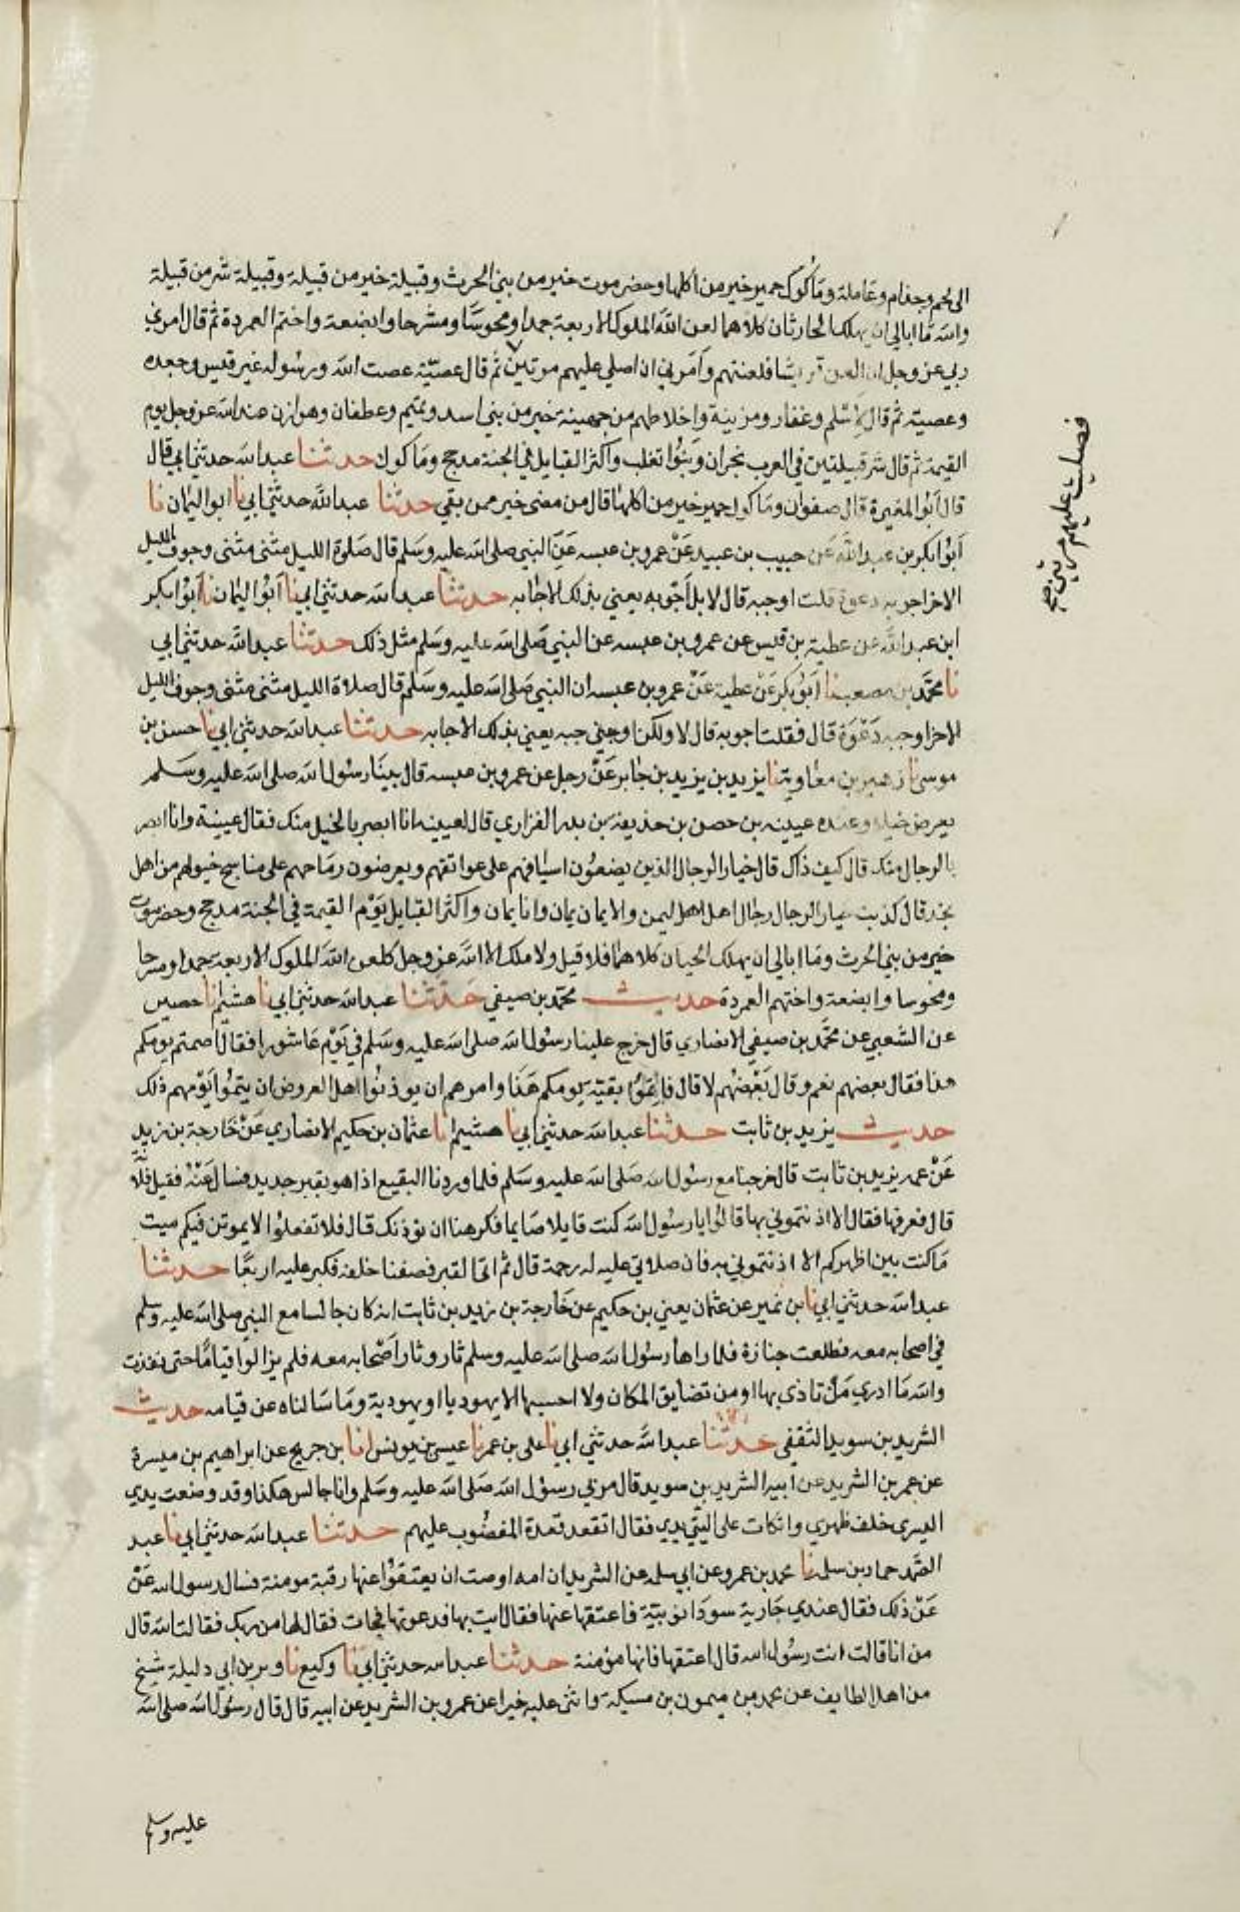 الى لخم وجذام وعاملة ومأكول حمير خير من اكلها وحضرموت خير من بني الحرث وقبيلة خير من قبيلة وقبيلة شر من قبيلة
والله ما ابالي ان يهلك الحارثان كلاهما لعن الله الملوك الاربعة جمدا ومخوسا ومشرحا وابضعة واختهم العمردة ثم قال امرني
ربي عز وجل ان العن قريشا فلعنتهم وأمرني ان اصلي عليهم مرتين ثم قال عصية عصت الله ورسوله غير قيس وجعده
وعصية ثم قال لأسلم وغفار ومزينة واخلاطهم من جهينة خير من بني اسد وتميم وغطفان وهوازن عند الله عز وجل يوم
القيمة ثم قال شر قبيلتين في العرب نجران وبنوا تغلب واكثر القبايل في الجنة مذحج ومأكول حدثنا عبد الله حدثني ابي قال
قال ابوا المغيرة قال صفوان ومأكول حمير خير من اكلها قال من مضى خير ممن بقي حدثنا عبد الله حدثني ابي نا ابو اليمان نا
ابوا بكر بن عبد الله عن حبيب بن عبيد عن عمرو بن عبسه عن النبي صلى الله عليه وسلم قال صلوة الليل مثنى مثنى وجوف الليل
الاخر اجوبه دعوة قلت اوجبه قال لا بل اجوبه يعني بذلك الاجابه حدثنا عبد الله حدثني ابي نا ابوا اليمان نا ابوا بكر
ابن عبد الله عن عطية بن قيس عن عمرو بن عبسه عن النبي صلى الله عليه وسلم مثل ذلك حدثنا عبد الله حدثني ابي
نا محمد بن مصعب نا ابو بكر عن عطية عن عمرو بن عبسه ان النبي صلى الله عليه وسلم قال صلاة الليل مثنى مثنى وجوف الليل
الاخر اوجبه دعوة قال فقلت اجوبه قال لا ولكن اوجبه يعني بذلك الاجابه حدثنا عبد الله حدثني ابي نا حسن بن
موسى نا زهير بن معاوية نا يزيد بن يزيد بن جابر عن رجل عن عمرو بن عبسه قال بينا رسول الله صلى الله عليه وسلم
يعرض خيلا وعنده عيينه بن حصن بن حذيفه بن بدر الفزاري قال لعيينه انا ابصر بالخيل منك فقال عيينة وانا ابصر
بالرجال منك قال كيف ذاك قال خيار الرجال الذين يضعون اسيافهم على عواتقهم ويعرضون رماحهم على مناسج خيولهم من اهل
نجد قال كذبت خيار الرجال رجال اهل اليمن والايمان يمان وانا يمان واكثر القبايل يوم القيمة في الجنة مذحج وحضرموت
خير من بني الحرث وما ابالي ان يهلك الحيان كلاهما فلا قيل ولا ملك الا الله عز وجل لعن الله الملوك الاربعة جمدا ومشرحا
ومخوسا وابضعة واختهم العمردة حديث محمد بن صيفي حدثنا عبد الله حدثني ابي نا هشيم انا حصين
عن الشعبي عن محمد بن صيفي الانصاري قال خرج علينا رسول الله صلى الله عليه وسلم في يوم عاشورا فقال أصمتم يومكم
هذا فقال بعضهم نعم وقال بعضهم لا قال فاتموا بقية يومكم هذا وامرهم ان يوذنوا اهل العروض ان يتموا يومهم ذلك
حديث يزيد بن ثابت حدثنا عبد الله حدثني ابي نا هشيم انا عثمان بن حكيم الانصاري عن خارجة بن زيد
عن عمه يزيد بن ثابت قال خرجنا مع رسول الله صلى الله عليه وسلم فلما وردنا البقيع اذا هو بقبر جديد فسال عنه فقيل فلانة
قال فعرفها فقال الا اذنتموني بها قالوا يا رسول الله كنت قايلا صايما فكرهنا ان نوذنك قال فلا تفعلوا لا يموتن فيكم ميت
ما كنت بين اظهركم الا اذنتموني به فان صلاتي عليه له رحمة قال ثم اتى القبر فصفنا خلفه فكبر عليه اربعا حدثنا
عبد الله حدثني ابي نا ابن نمير عن عثمان يعني بن حكيم عن خارجة بن زيد بن ثابت انه كان جالسا مع النبي صلى الله عليه وسلم
في اصحابه معه فطلعت جنازة فلما راها رسول الله صلى الله عليه وسلم ثار وثار اصحابه معه فلم يزالوا قياما حتى نفذت
والله ما ادري من تاذي بها او من تضايق المكان ولا احسبها الا يهوديا او يهودية وما سالناه عن قيامه حديث
الشريد بن سويد الثقفي حدثنا عبد الله حدثني ابي نا على بن عمر نا عيسى بن يونس انا بن جريج عن ابراهيم بن ميسرة
عن عمر بن الشريد عن ابيه الشريد بن سويد قال مر بي رسول الله صلى الله عليه وسلم وانا جالس هكذا وقد وضعت يدي
اليسرى خلف ظهري واتكات على الية يدي فقال اتقعد قعدة المغضوب عليهم حدثنا عبد الله حدثني ابي نا عبد
الصمد حماد بن سلمه نا محمد بن عمرو عن ابي سلمه عن الشريد ان امه اوصت ان يعتقوا عنها رقبة مومنة فسال رسول الله عن
عن ذلك فقال عندي جارية سودا نوبية فاعتقها عنها فقال ايت بها فدعوتها فجات فقال لها من ربك فقالت الله قال
من انا قالت انت رسول الله قال اعتقها فانها مؤمنة حدثنا عبد الله حدثني ابي نا وكيع نا وبر بن ابي دليلة شيخ
من اهل الطايف عن محمد بن ميمون بن مسيكه واثنى عليه خيرا عن عمرو بن الشريد عن ابيه قال قال رسول الله صلى الله
عليه وسلم
فصليت عليهم مرتين صح